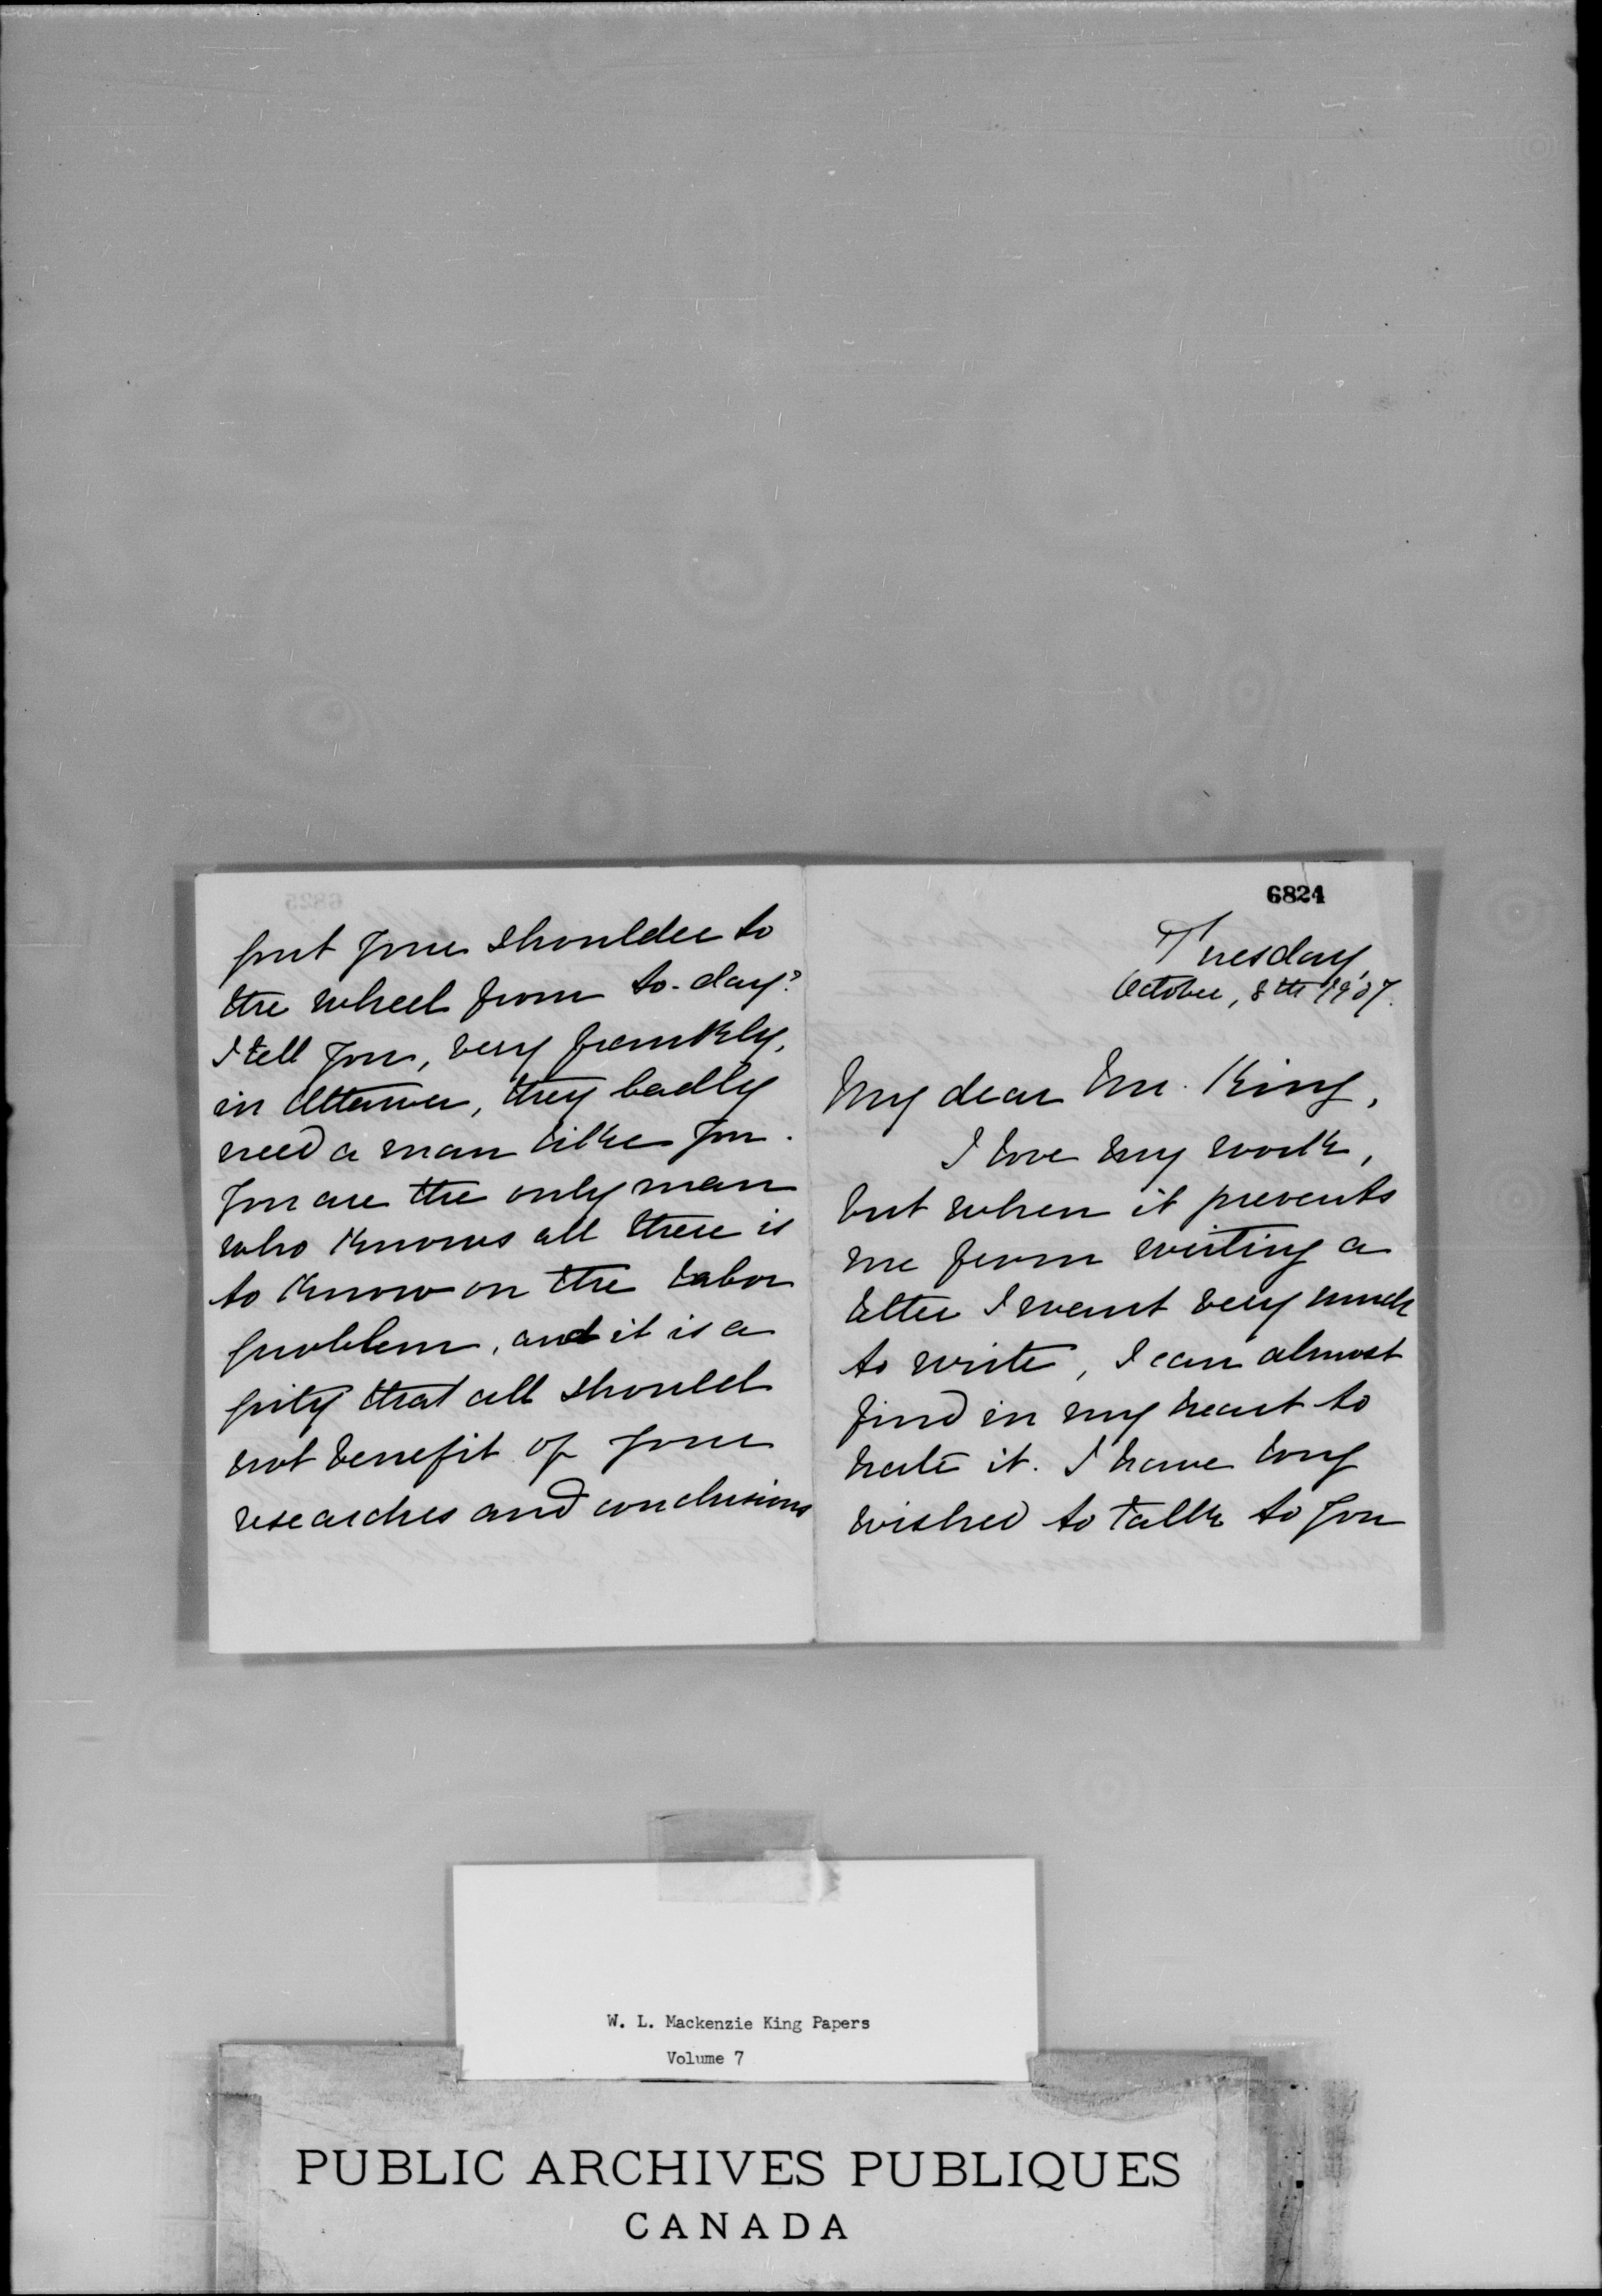 put your shoulder to
the wheel from to-day?
I tell you, very frankly,
in Ottawa, they badly
need a man like you.
You are the only man
who knows all there is
to know on the labor
problem, and it is a
pity that all should
not benefit of your
researches and conclusions
6824
Tuesday,
October, 8th 1907.
My dear Mr. King,
I love my work,
but when it prevents
me from writing a
letter I want very much
to write, I can almost
find in my heart to
hate it. I have long
wished to talk to you
W. L. Mackenzie King Papers
Volume 7
PUBLIC ARCHIVES PUBLIQUES
CANADA